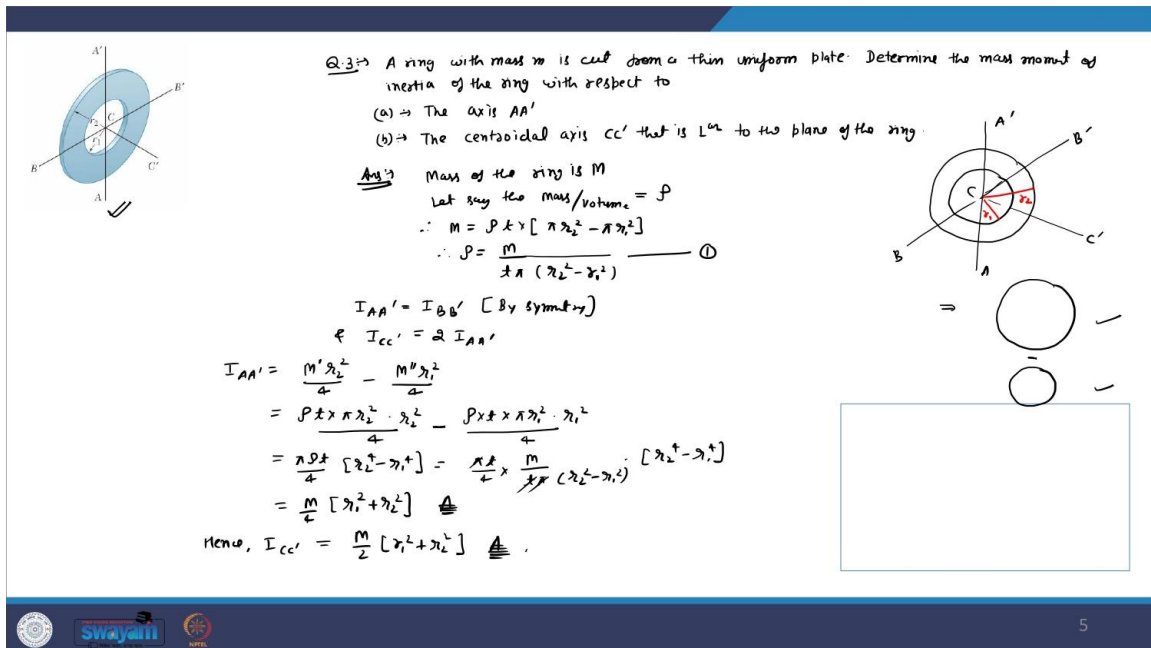 A'
B'
C
r2
r1
B
C'
A
Q.3:→ A ring with mass m is cut from a thin uniform plate. Determine the mass moment of
inertia of the ring with respect to
(a) → The axis AA'
(b) → The centroidal axis CC' that is Lar to the plane of the ring.
Ans:→ Mass of the ring is M
Let say the mass/volume = ρ
∴ M = ρ t × [πr₂² - πr₁²]
∴ ρ = M / tπ (r₂² - r₁²) ——— ①
I_AA' = I_BB' [By symmetry)
& I_CC' = 2 I_AA'
I_AA' = M'r₂²/4 - M''r₁²/4
= ρt×πr₂²·r₂²/4 - ρ×t×πr₁²·r₁²/4
= πρt/4 [r₂⁴-r₁⁴] = πt/4 × M/tπ (r₂²-r₁²) [r₂⁴-r₁⁴]
= M/4 [r₁²+r₂²] A
Hence, I_CC' = M/2 [r₁²+r₂²] A.
A'
B'
C
r2
r1
C'
B
A
⇒
-
swayam
NPTEL
5